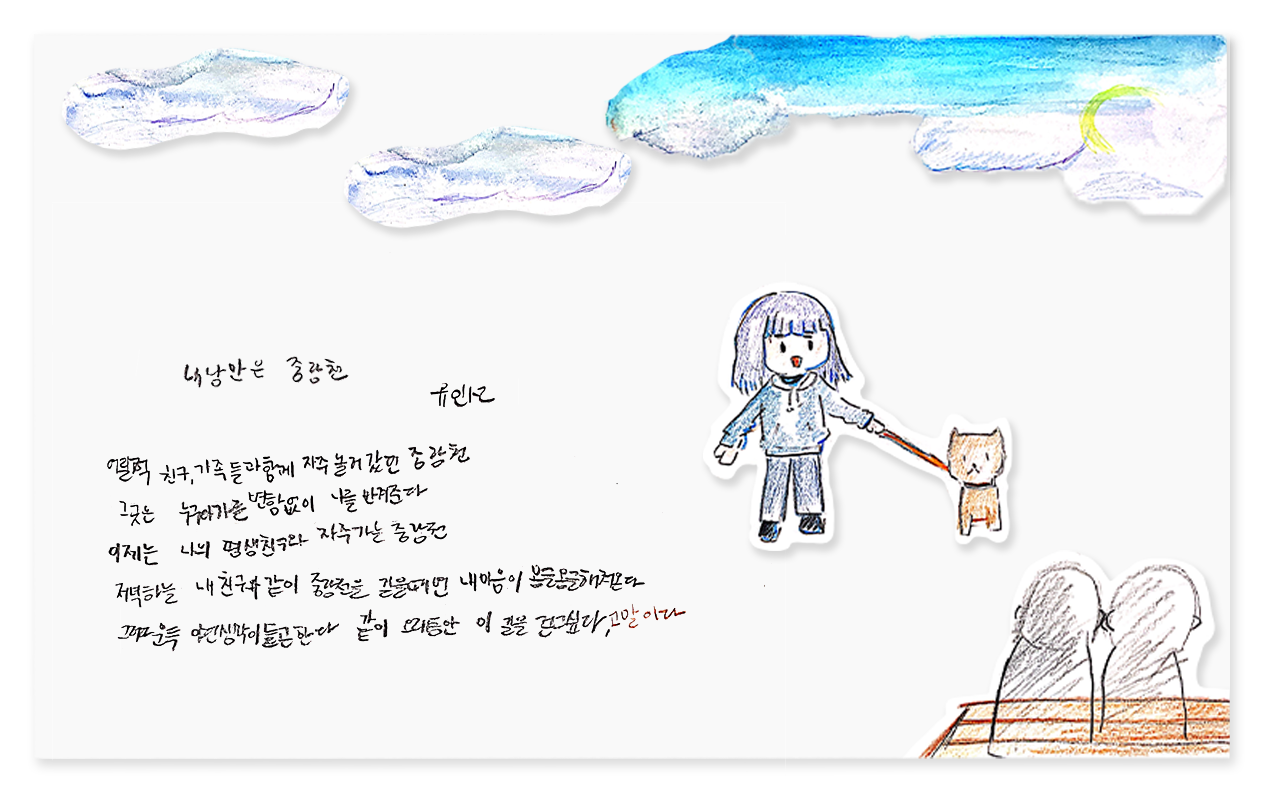 내 낭만은 중랑천
유인
어릴적 친구, 가족들과 함께 자주 놀러 갔던 중랑천
그곳은 누구 변함없이 나를 반겨준다
이제는 나의 평생친구와 자주가는 중랑천
저녁하늘 내 친구와 같이 중랑천을 걸을때면 내 마음이 몽글몽글해진다
그러다 문득 이런생각이 들곤한다 같이 오래동안 이 길을 걷고싶다,고 말이다